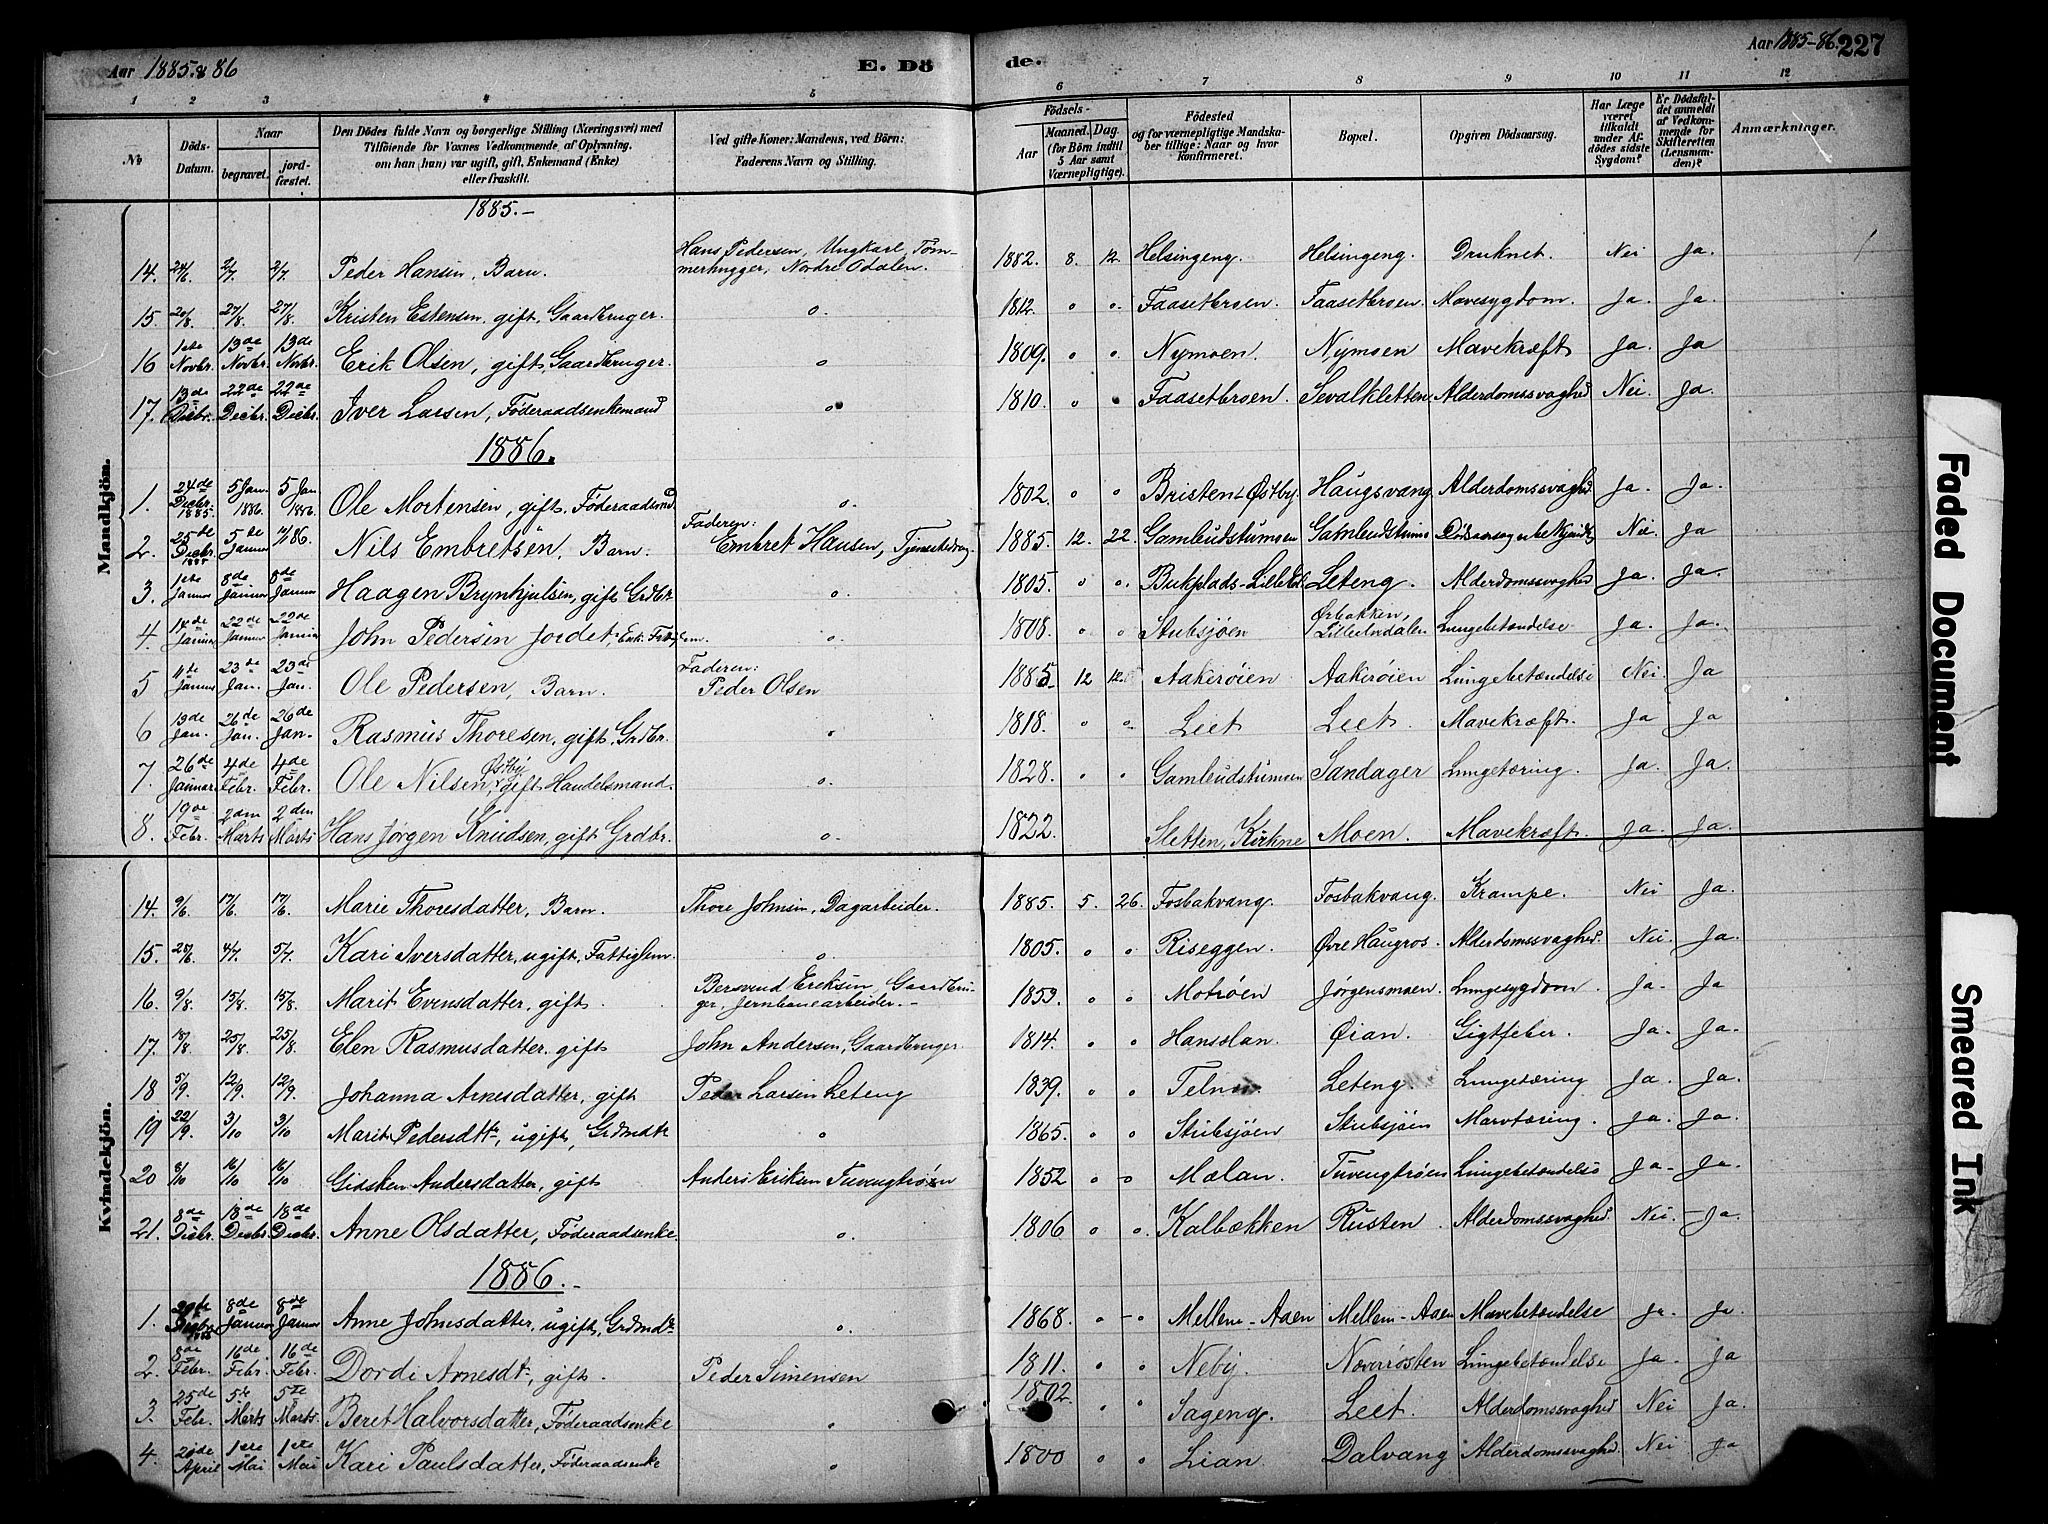 Aar 1885 & 86
E. Dö
de.
Aar 1885-86. 227
1 2 3 4 5 6 7 8 9 10 11 12
No
Döds-Datum.
Naar
begravet.
jord-fæstet.
Den Dödes fulde Navn og borgerlige Stilling (Næringsvei) med
Tilföiende for Voxnes Vedkommende af Oplysning,
om han (hun) var ugift, gift, Enkemand (Enke)
eller fraskilt.
Ved gifte Koner: Mandens, ved Börn:
Faderens Navn og Stilling.
Födsels-
Aar
Maaned. Dag.
(for Börn indtil
5 Aar samt
Værnepligtige).
Födested
og for værnepligtige Mandska-
ber tillige: Naar og hvor
konfirmeret.
Bopæl.
Opgiven Dödsaarsag.
Har Læge
været
tilkaldt
under Af-
dödes sidste
Sygdom?
Er Dödsfal-
det anmeldt
af Vedkom-
mende for
Skifteretten
(Lensman-
den)?
Anmærkninger.
Mandkjön.
1885.-
14. 24/6. 2/7. 2/7. Peder Hansen, Barn. Hans Pedersen, Ungkarl, Töm-
merhugger, Nordre Odalen. 1882. 8. 12. Helsingeng. Helsingeng. Druknet. Nei Ja.
15. 20/8. 27/8. 27/8. Kristen Estensen, gift, Gaardbruger. o. 1812. o o. Faasetbroen. Faasetbroen. Mavesygdom. Ja. Ja.
16 1ste Novbr. 13de Novbr. 13de Novbr. Erik Olsen, gift, Gaardbruger. o 1809. o o. Nymoen. Nymoen Mavekræft Ja. Ja
17. 13de Decbr. 22de Decbr. 22de Decbr. Iver Larsen, Föderaadsenkemand o 1810. o o Faasetbroen. Sevalkletten. Alderdomssvaghed Nei. Ja.
1886.
1. 24de Decbr. 1885. 5 Jan. 1886. 5 Jan 1886. Ole Mortensen, gift. Föderaadsmd o. 1802. o o Bristen-Østby. Haugsvang Alderdomssvaghed Ja. Ja.
2. 25de Decbr. 1885 5de Januar 14/1 86. Nils Embretsen, Barn. Faderen:
Embret Hansen, 1885. 12. 22. Gamleudstumoen Gamleudstumo Nei. Ja
3. 1ste Januar 8de Januar 8de Januar Haagen Brynhjulsen, gift Grdbr. o. 1805. o o. Leteng. Alderdomssvaghed Ja. Ja.
4. 14de Januar 22de Januar 22de Januar John Pedersen Jordet, o. 1808. o o Stubsjöen Ørbakken, Lilleelvdalen Lungebetændelse Ja. Ja.
5 11de Januar 23de Jan. 23de Jan. Ole Pedersen, Barn. Faderen:
Peder Olsen 1885. 12 12. Aakeröien Aakeröien Lungebetændelse Nei. Ja
6 19de Jan. 26de Jan. 26de Jan. Rasmus Thoresen, gift, Grdbr. o 1818. o o Leet Leet. Mavekræft. Ja Ja
7. 26de Januar 4de Febr. 4de Febr. Ole Nilsen Østby, gift Handelsmand. o. 1828. o o Gamleudstumoen Sandager Lungetæring. Ja. Ja.
8. 19de Febr. 2den Marts 2den Marts Hans Jörgen Knudsen, gift Grdbr. o. 1822. Sletten, Kirkne Moen. Mavekræft. Ja. Ja.
Kvindekjön.
14. 9/6. 17/6. 17/6. Marie Thoresdatter, Barn. Thore Johnsen, Dagarbeider. 1885. 5. 26. Fosbakvang. Fosbakvang. Krampe. Nei Ja.
15. 25/6. 4/7. 5/7. Kari Iversdatter, ugift, Fattiglem. o 1805. o o Riseggen. Övre Haugros. Alderdomssvaghed. Nei. Ja.
16. 9/8. 15/8. 15/8. Marit Evensdatter, gift. Bersvend Eriksen, Gaardbru-
ger, Jernbanearbeider. - 1859. o o Moröen Jörgensmoen. Lungesygdom. Ja. Ja
17. 18/8. 25/8. 25/8. Elen Rasmusdatter, gift John Andersen, Gaardbruger. 1814. o o Hanselan. Øian. Gigtfeber. Ja. Ja.
18 5/9. 12/9. 12/9. Johanna Arnesdatter, gift Peder Larsen Leteng 1839. o o. Leteng. Lungetæring Ja. Ja.
19 22/9. 3/10 3/10 Marit Pedersdtr, ugift, o 1865. o o Stubsjöen Stubsjöen Marvtæring. Ja. Ja.
20 8/10 16/10 16/10 Gidsken Andersdatter, gift Anders Eriksen Tuvengtröen 1852 o o Mælan. Tuvengtröen Lungebetændelse Ja. Ja.
21. 8de Decbr. 18de Decbr. 18de Decbr. Anne Olsdatter, Föderaadsenke. o. 1806 o o. Kalbækken Rusten. Alderdomssvaghed. Nei. Ja.
1886.-
1. Decbr 1885 8de Januar 8de Januar Anne Johnsdatter, ugift, o. 1868. o o Mellem-Aaen Mellem-Aaen Mavebetændelse Ja. Ja.
2. 8de Febr. 16de Febr. 16de Febr. Dordi Arnesdtr, gift. Peder Simensen 1811. o o Neby. Noverösten Lungebetændelse Ja. Ja
3. 25de Febr. 5te Marts 5te Marts. Beret Halvorsdatter, Föderaadsenke o 1802. o o Sageng. Leet. Alderdomssvaghed Nei Ja.
4. April 1ste Mai 1ste Mai Kari Paulsdatter, Föderaadsenke o 1800 o o. Lian. Dalvang Alderdomssvaghed. Nei Ja
Faded Document
Smeared Ink